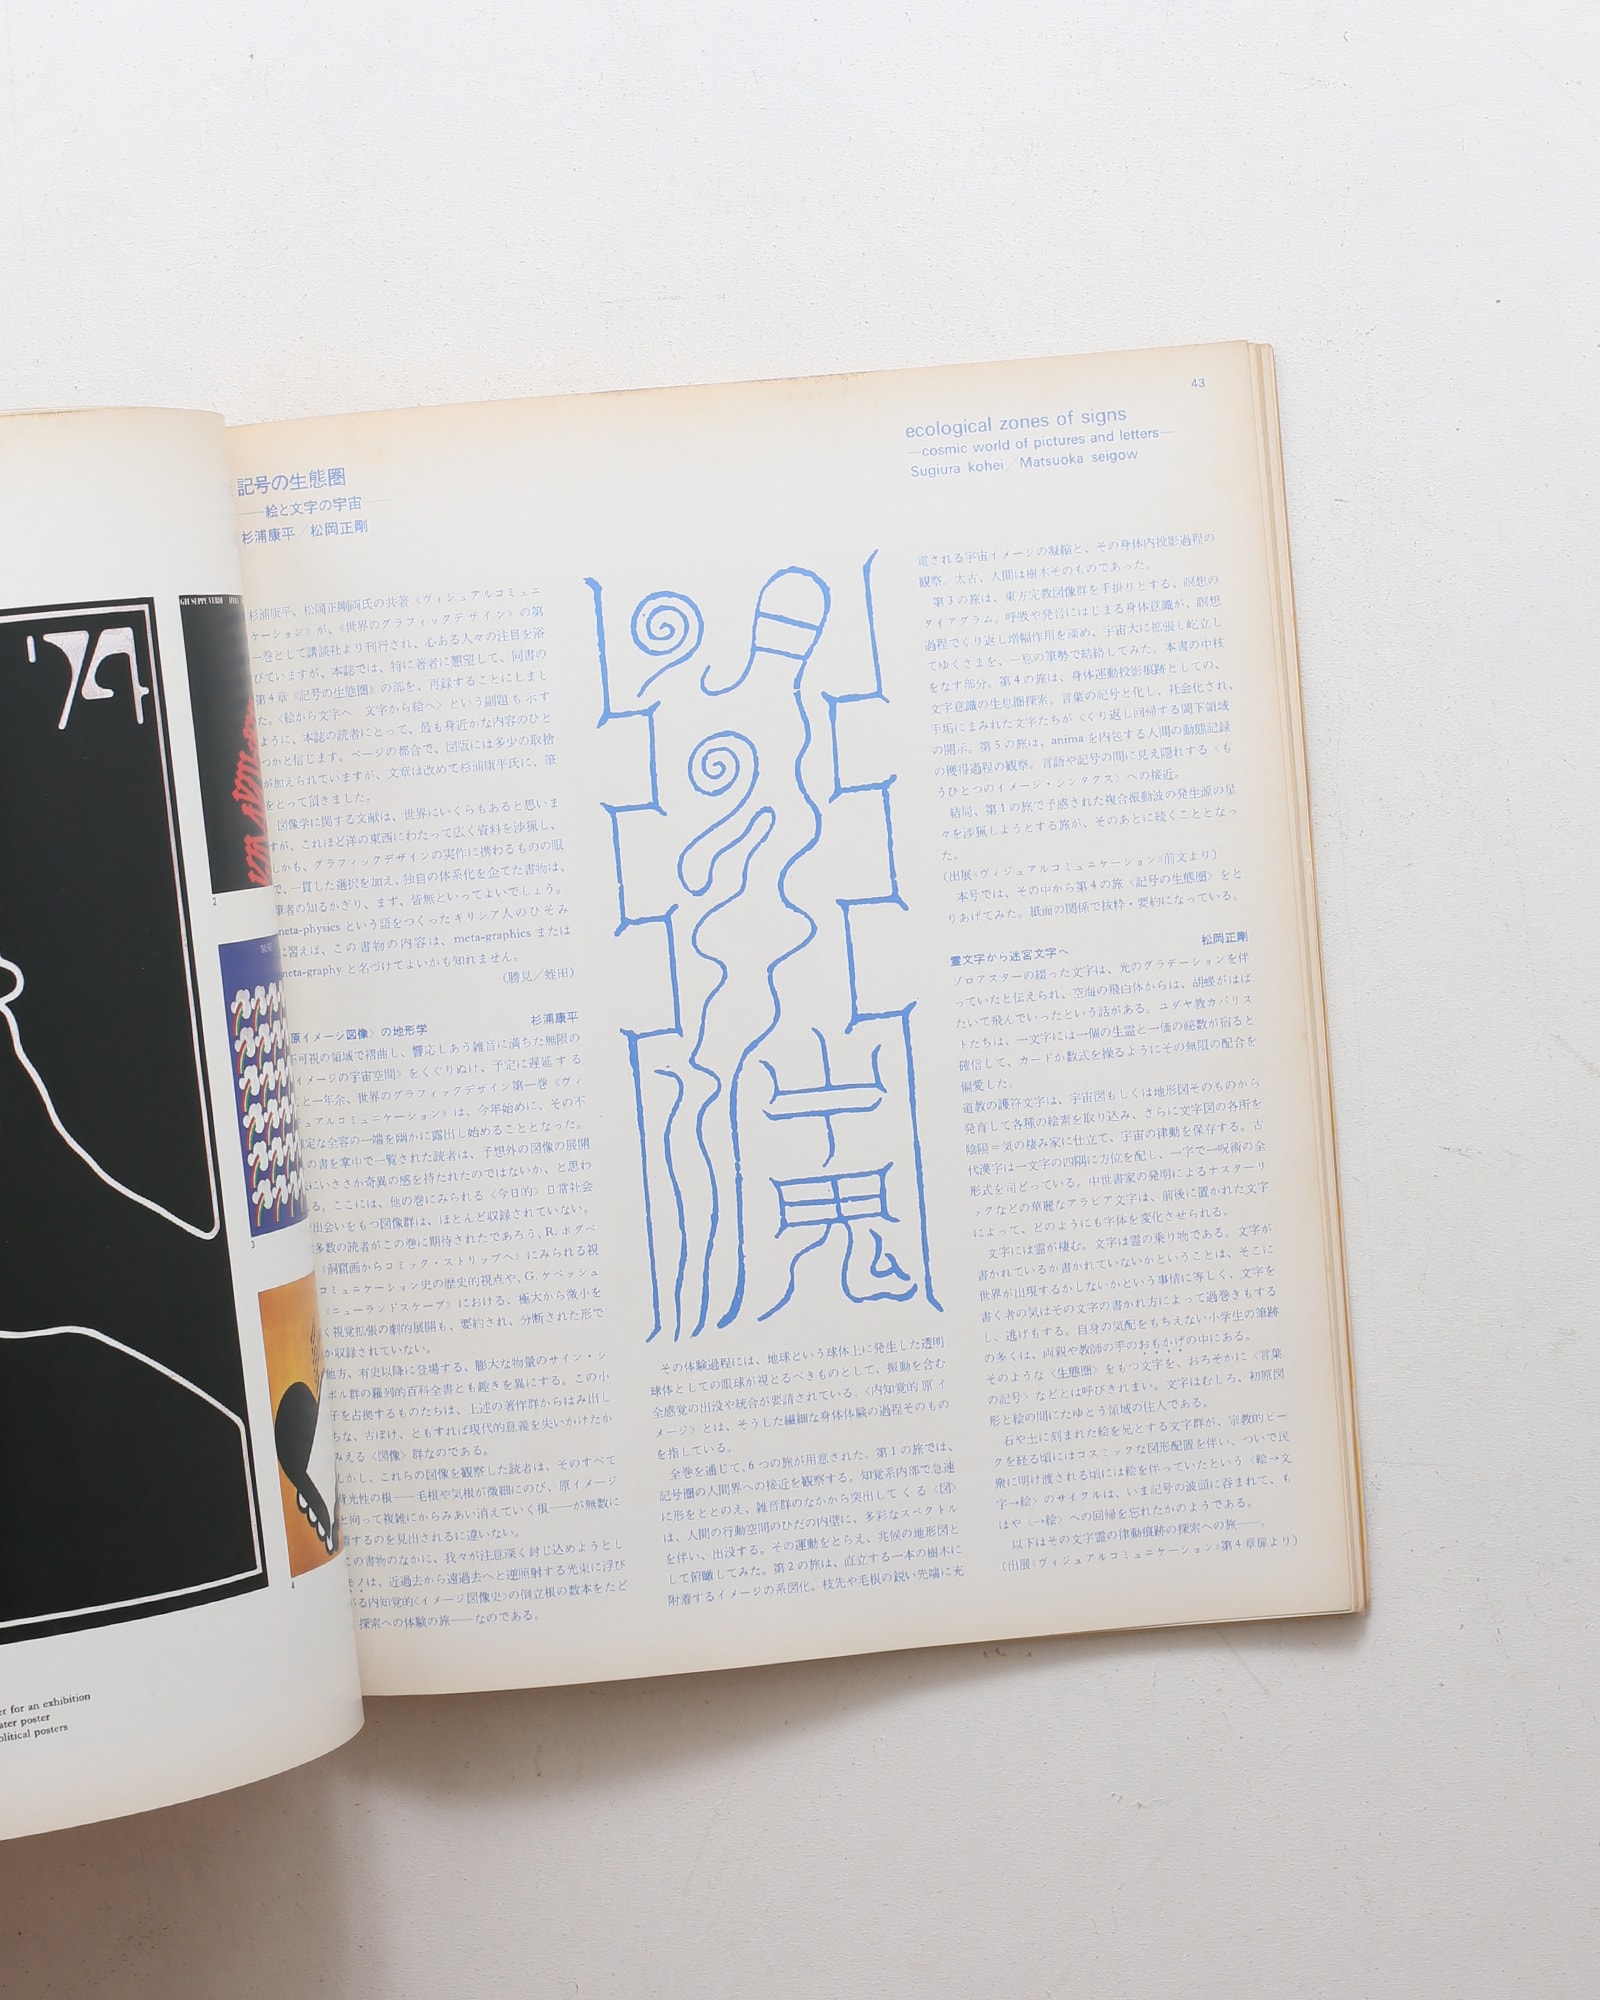 '74
GIUSEPPE VERDI
2
3
4
er for an exhibition
ater poster
olitical posters
43
ecological zones of signs
—cosmic world of pictures and letters—
Sugiura kohei／Matsuoka seigow
記号の生態圏
——絵と文字の宇宙——
杉浦康平／松岡正剛
杉浦康平、松岡正剛両氏の共著《ヴィジュアルコミュニ
ケーション》が、《世界のグラフィックデザイン》の第
一巻として講談社より刊行され、心ある人々の注目を浴
びていますが、本誌では、特に著者に懇望して、同書の
第4章《記号の生態圏》の部を、再録することにしまし
た。〈絵から文字へ　文字から絵へ〉という副題も示す
ように、本誌の読者にとって、最も身近かな内容のひと
つかと信じます。ページの都合で、図版には多少の取捨
が加えられていますが、文章は改めて杉浦康平氏に、筆
をとって頂きました。
図像学に関する文献は、世界にいくらもあると思いま
すが、これほど洋の東西にわたって広く資料を渉猟し、
しかも、グラフィックデザインの実作に携わるものの眼
で、一貫した選択を加え、独自の体系化を企てた書物は、
筆者の知るかぎり、まず、皆無といってよいでしょう。
meta-physics という語をつくったギリシア人のひそみ
に習えば、この書物の内容は、meta-graphics または
meta-graphy と名づけてよいかも知れません。
（勝見／蛭田）
原イメージ図像〉の地形学
杉浦康平
不可視の領域で褶曲し、響応しあう雑音に満ちた無限の
イメージの宇宙空間〉をくぐりぬけ、予定に遅延する
と一年余、世界のグラフィックデザイン第一巻《ヴィ
ュアルコミュニケーション》は、今年始めに、その不
定な全容の一端を幽かに露出し始めることとなった。
の書を掌中で一覧された読者は、予想外の図像の展開
にいささか奇異の感を持たれたのではないか、と思わ
る。ここには、他の巻にみられる〈今日的〉日常社会
出会いをもつ図像群は、ほとんど収録されていない。
多数の読者がこの巻に期待されたであろう、R.ボグベ
《洞窟画からコミック・ストリップへ》にみられる視
コミュニケーション史の歴史的視点や、G.ケペッシュ
《ニューランドスケープ》における、極大から微小を
く視覚拡張の劇的展開も、要約され、分断された形で
か収録されていない。
他方、有史以降に登場する、膨大な物量のサイン・シ
ボル群の羅列的百科全書とも趣きを異にする。この小
子を占拠するものたちは、上述の著作群からはみ出し
ちな、古ぼけ、ともすれば現代的意義を失いかけたか
みえる〈図像〉群なのである。
しかし、これらの図像を観察した読者は、そのすべて
背光性の根——毛根や気根が微細にのび、原イメージ
と向って複雑にからみあい消えていく根——が無数に
着するのを見出されるに違いない。
この書物のなかに、我々が注意深く封じ込めようとし
モノは、近過去から遠過去へと逆照射する光束に浮び
る内知覚的〈イメージ図像史〉の倒立根の数本をたど
探索への体験の旅——なのである。
鬼
その体験過程には、地球という球体上に発生した透明
球体としての眼球が視とるべきものとして、振動を含む
全感覚の出没や統合が要請されている。〈内知覚的原イ
メージ〉とは、そうした繊細な身体体験の過程そのもの
を指している。
全巻を通じて、6つの旅が用意された。第1の旅では、
記号圏の人間界への接近を観察する。知覚系内部で急速
に形をととのえ、雑音群のなかから突出してくる〈図〉
は、人間の行動空間のひだの内壁に、多彩なスペクトル
を伴い、出没する。その運動をとらえ、兆候の地形図と
して俯瞰してみた。第2の旅は、直立する一本の樹木に
附着するイメージの系図化。枝先や毛根の鋭い先端に充
電される宇宙イメージの凝縮と、その身体内投影過程の
観察。太古、人間は樹木そのものであった。
第3の旅は、東方宗教図像群を手掛りとする、瞑想の
ダイアグラム。呼吸や発音にはじまる身体意識が、瞑想
過程でくり返し増幅作用を深め、宇宙大に拡張し屹立し
てゆくさまを、一息の筆勢で結絡してみた。本書の中核
をなす部分。第4の旅は、身体運動投影痕跡としての、
文字意識の生息圏探索。言葉の記号と化し、社会化され、
手垢にまみれた文字たちが〈くり返し回帰する閾下領域
の開示。第5の旅は、anima を内包する人間の動態記録
の獲得過程の観察。言語や記号の間に見え隠れする〈も
うひとつのイメージ・シンタクス〉への接近。
結局、第1の旅で予感された複合振動波の発生源の星
々を渉猟しようとする旅が、そのあとに続くこととなっ
た。
（出展《ヴィジュアルコミュニケーション》前文より）
本号では、その中から第4の旅〈記号の生態圏〉をと
りあげてみた。紙面の関係で抜粋・要約になっている。
霊文字から迷宮文字へ
松岡正剛
ゾロアスターの綴った文字は、光のグラデーションを伴
っていたと伝えられ、空海の飛白体からは、胡蝶がはば
たいて飛んでいったという話がある。ユダヤ教カバリス
トたちは、一文字には一個の生霊と一価の秘数が宿ると
確信して、カードか数式を操るようにその無限の配合を
偏愛した。
道教の護符文字は、宇宙図もしくは地形図そのものから
発育して各種の絵素を取り込み、さらに文字図の各所を
陰陽＝気の棲み家に仕立て、宇宙の律動を保存する。古
代漢字は一文字の四隅に方位を配し、一字で一呪術の全
形式を司どっている。中世書家の発明によるナスターリ
ックなどの華麗なアラビア文字は、前後に置かれた文字
によって、どのようにも字体を変化させられる。
文字には霊が棲む。文字は霊の乗り物である。文字が
書かれているか書かれていないかということは、そこに
世界が出現するかしないかという事情に等しく、文字を
書く者の気はその文字の書かれ方によって過巻きもする
し、逃げもする。自身の気配をもちえない小学生の筆跡
の多くは、両親や教師の手のおもかげの中にある。
そのような〈生態圏〉をもつ文字を、おろそかに〈言葉
の記号〉などとは呼びきれまい。文字はむしろ、初原図
形と絵の間にたゆとう領域の住人である。
石や土に刻まれた絵を兄とする文字群が、宗教的ピー
クを経る頃にはコスミックな図形配置を伴い、ついで民
衆に明け渡される頃には絵を伴っていたという〈絵→文
字→絵〉のサイクルは、いま記号の波頭に呑まれて、も
はや〈→絵〉への回帰を忘れたかのようである。
以下はその文字霊の律動痕跡の探索への旅——。
（出展《ヴィジュアルコミュニケーション》第4章扉より）